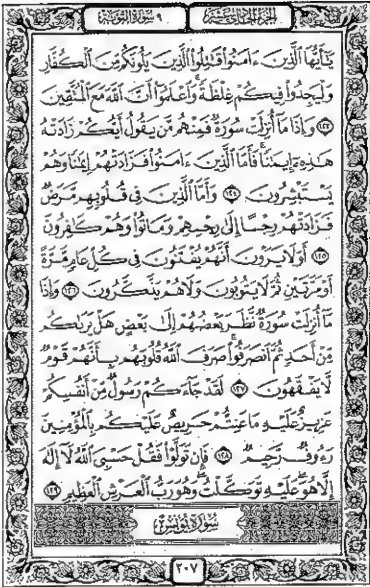 الجزء الحادي عشر ٩ سورة التوبة
يَٰٓأَيُّهَا ٱلَّذِينَ ءَامَنُوا۟ قَٰتِلُوا۟ ٱلَّذِينَ يَلُونَكُم مِّنَ ٱلْكُفَّارِ
وَلْيَجِدُوا۟ فِيكُمْ غِلْظَةً وَٱعْلَمُوٓا۟ أَنَّ ٱللَّهَ مَعَ ٱلْمُتَّقِينَ
١٢٣ وَإِذَا مَآ أُنزِلَتْ سُورَةٌ فَمِنْهُم مَّن يَقُولُ أَيُّكُمْ زَادَتْهُ
هَٰذِهِۦٓ إِيمَٰنًا فَأَمَّا ٱلَّذِينَ ءَامَنُوا۟ فَزَادَتْهُمْ إِيمَٰنًا وَهُمْ
يَسْتَبْشِرُونَ ١٢٤ وَأَمَّا ٱلَّذِينَ فِى قُلُوبِهِم مَّرَضٌ
فَزَادَتْهُمْ رِجْسًا إِلَىٰ رِجْسِهِمْ وَمَاتُوا۟ وَهُمْ كَٰفِرُونَ
١٢٥ أَوَلَا يَرَوْنَ أَنَّهُمْ يُفْتَنُونَ فِى كُلِّ عَامٍ مَّرَّةً
أَوْ مَرَّتَيْنِ ثُمَّ لَا يَتُوبُونَ وَلَا هُمْ يَذَّكَّرُونَ ١٢٦ وَإِذَا
مَآ أُنزِلَتْ سُورَةٌ نَّظَرَ بَعْضُهُمْ إِلَىٰ بَعْضٍ هَلْ يَرَىٰكُم
مِّنْ أَحَدٍ ثُمَّ ٱنصَرَفُوا۟ صَرَفَ ٱللَّهُ قُلُوبَهُم بِأَنَّهُمْ قَوْمٌ
لَّا يَفْقَهُونَ ١٢٧ لَقَدْ جَآءَكُمْ رَسُولٌ مِّنْ أَنفُسِكُمْ
عَزِيزٌ عَلَيْهِ مَا عَنِتُّمْ حَرِيصٌ عَلَيْكُم بِٱلْمُؤْمِنِينَ
رَءُوفٌ رَّحِيمٌ ١٢٨ فَإِن تَوَلَّوْا۟ فَقُلْ حَسْبِىَ ٱللَّهُ لَآ إِلَٰهَ
إِلَّا هُوَ عَلَيْهِ تَوَكَّلْتُ وَهُوَ رَبُّ ٱلْعَرْشِ ٱلْعَظِيمِ ١٢٩
سورة يونس
٢٠٧